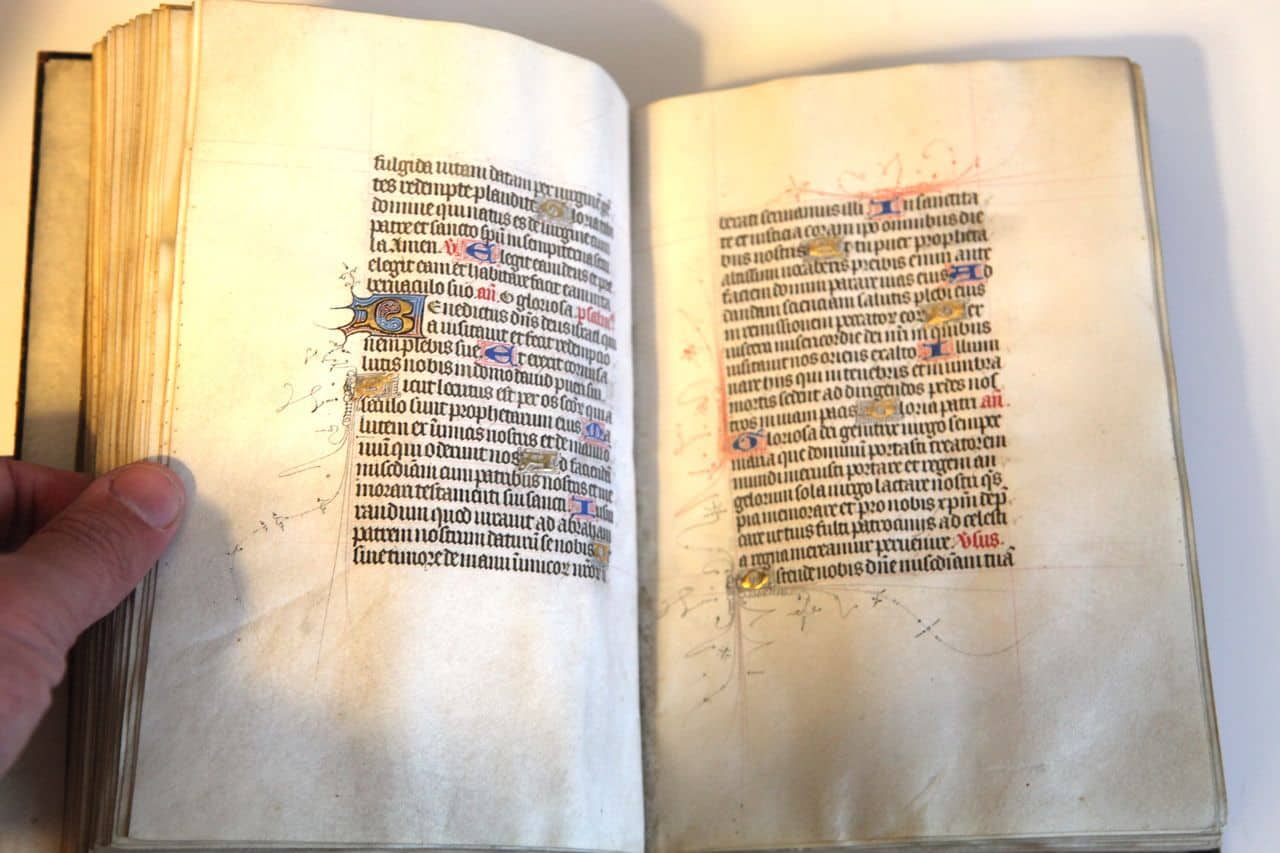 fulgida uitam datam per uirginē gē
tes redempte plaudite Gloria tibi
domine qui natus es de uirgine cum
patre et sancto spū in sempiterna secu
la Amen V Elegit eam deus et pre
elegit eam et habitare facit eam in ta
bernaculo suo añ. O gloriosa psalmus
Benedictus dñs deus israel qui
a uisitauit et fecit redemptio
nem plebis sue Et erexit cornu sa
lutis nobis in domo dauid pueri sui
Sicut locutus est per os sctōr qui a
seculo sunt prophetarum eius Sa
lutem ex inimicis nostris et de manu o
mniū qui oderunt nos Ad faciendā
misediam cum patribus nostris et me
morari testamenti sui sancti Ius
iurandum quod iurauit ad abraham
patrem nostrum daturū se nobis
sine timore de manu inimicor nr̄or
berati seruiamus illi In sanctita
te et iusticia coram ipo omnibus die
bus nostris Et tu puer propheta
altissimi uocaberis preibis enim ante
faciem domini parare uias eius Ad
dandam scienciam salutis plebi eius
in remissionem peccatorū eor Per
uiscera misericordie dei nr̄i in quibus
uisitauit nos oriens ex alto Illumi
nare hiis qui in tenebris et in umbra
mortis sedent ad dirigendos pedes nos
tros in uiam pacis Gloria patri añ.
Gloriosa dei genitrix uirgo semper
maria que dominum portasti creatorem
mundi meruisti portare et regem an
gelorum sola uirgo lactare nostri qs̄
pia memorare et pro nobis xpūm dep̄
care ut tuis fulti patrociniis ad celesti
a regna mereamur peruenire Vsus.
Ostende nobis dñe misediam tuā